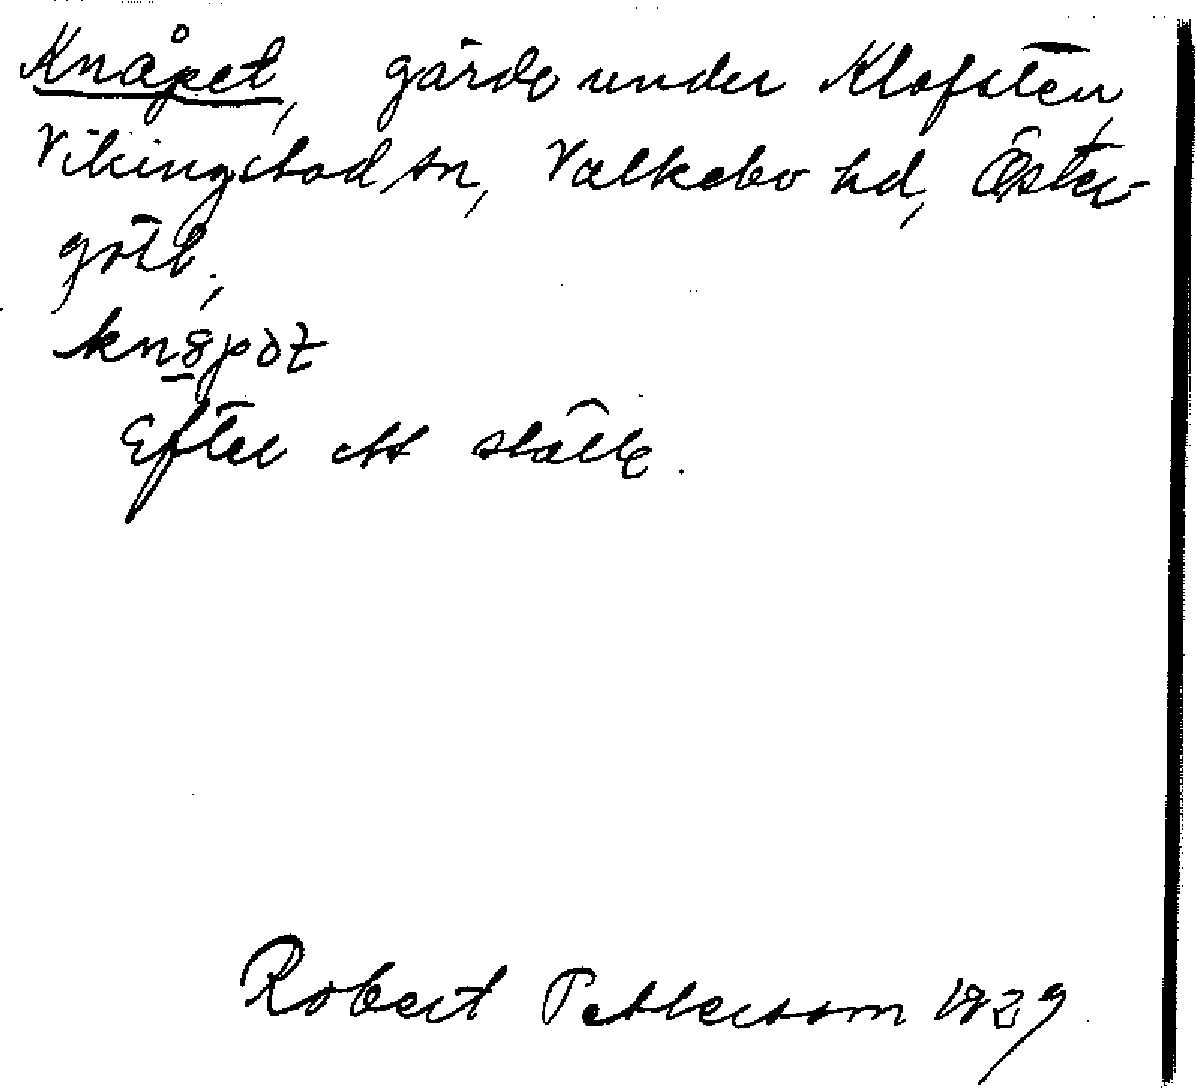 Knåpet, gärde under Klofsten,
Vikingstad sn, Valkebo hd, Öster-
götl.,
knåpət
Efter ett ställe.
Robert Pettersson 1929